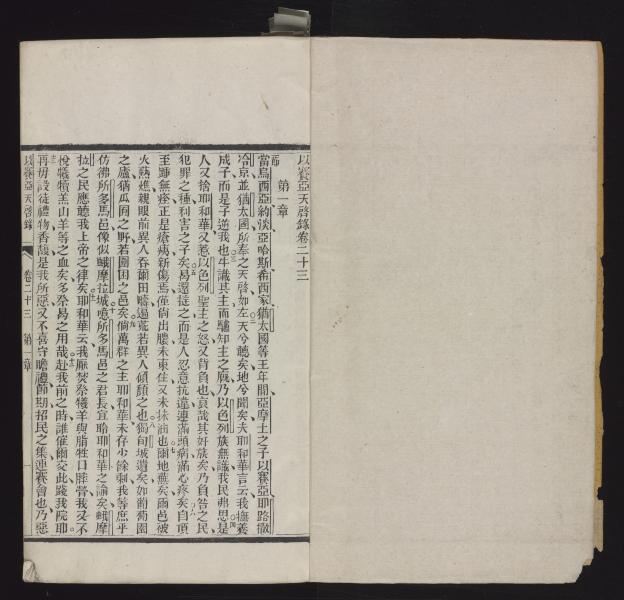 以賽亞天啓錄卷二十三
第一章
當烏西亞約淡亞哈斯希西家猶太國等王年間亞摩士之子以賽亞耶路撒
冷京並猶太國所奉之天啓如左天兮聽矣地兮聞矣夫耶和華言云我撫養
成子而是子逆我也牛識其主而驢知主之厩乃以色列族無識我民弗思是
人又捨耶和華又惹以色列聖主之怒又背負也哀哉其奸族矣乃負咎之民
犯罪之種利害之子矣曷還從之而是人忍意抗違連滿頭病滿心疼矣自頂
至踵無痊正是瘡痍新傷焉倘出膿未束住又未抹油也爾地蕪矣爾邑被
火爇燋親眼前異人吞爾田疇遏荒若異人傾頹之也獨旬城遺矣如葡萄園
之廬猶瓜園之野若圍困之邑矣倘萬群之主耶和華未存少餘剩我等庶乎
仿彿所多馬邑像似蛾摩拉城噫所多馬邑之君長宜聆耶和華之諭矣蛾摩
拉之民應聽我上帝之律矣耶和華云我厭焚祭犧羊與脂牲口膵膋我又不
悅犧犢羔山羊等之血矣多祭曷之用哉赴我前之時誰催爾交此踐我院耶
再毋設徒禮物香馥是我所惡又不喜守瞻禮節期招民之集連賽會也乃惡
以賽亞天啓錄 卷二十三 第一章 一